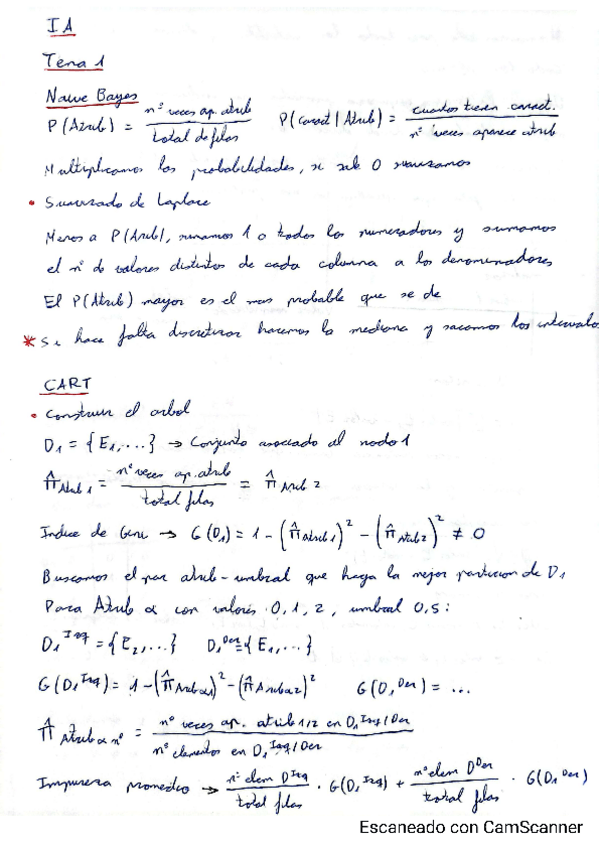 IA
Tema 1
Naive Bayes
P(Atrib) = nº veces ap. atrib / total de filas    P(caract | Atrib) = cuantos tienen caract. / nº veces aparece atrib
Multiplicamos las probabilidades, si sale 0 suavizamos
• Suavizado de Laplace
Menos a P(Atrib), sumamos 1 a todos los numeradores y sumamos
el nº de valores distintos de cada columna a los denominadores
El P(Atrib) mayor es el mas probable que se de
* Si hace falta discretizar hacemos la mediana y sacamos los intervalos
CART
• Construir el arbol
D₁ = {E₁,...} → Conjunto asociado al nodo 1
π̂ Atrib 1 = nº veces ap. atrib / total filas = π̂ Atrib 2
Indice de Gini → G(D₁) = 1 - (π̂ atrib 1)² - (π̂ atrib 2)² ≠ 0
Buscamos el par atrib-umbral que haga la mejor particion de D₁
Para Atrib α con valores 0, 1, 2, umbral 0,5:
D₁^Izq = {E₂,...}    D₁^Der = {E₁,...}
G(D₁^Izq) = 1 - (π̂ Atrib α1)² - (π̂ Atrib α2)²    G(D₁^Der) = ...
π̂ Atrib α nº = nº veces ap. atrib 1/2 en D₁^Izq/Der / nº elementos en D₁^Izq/Der
Impureza promedio → nº elem D^Izq / total filas · G(D₁^Izq) + nº elem D^Der / total filas · G(D₁^Der)
Escaneado con CamScanner